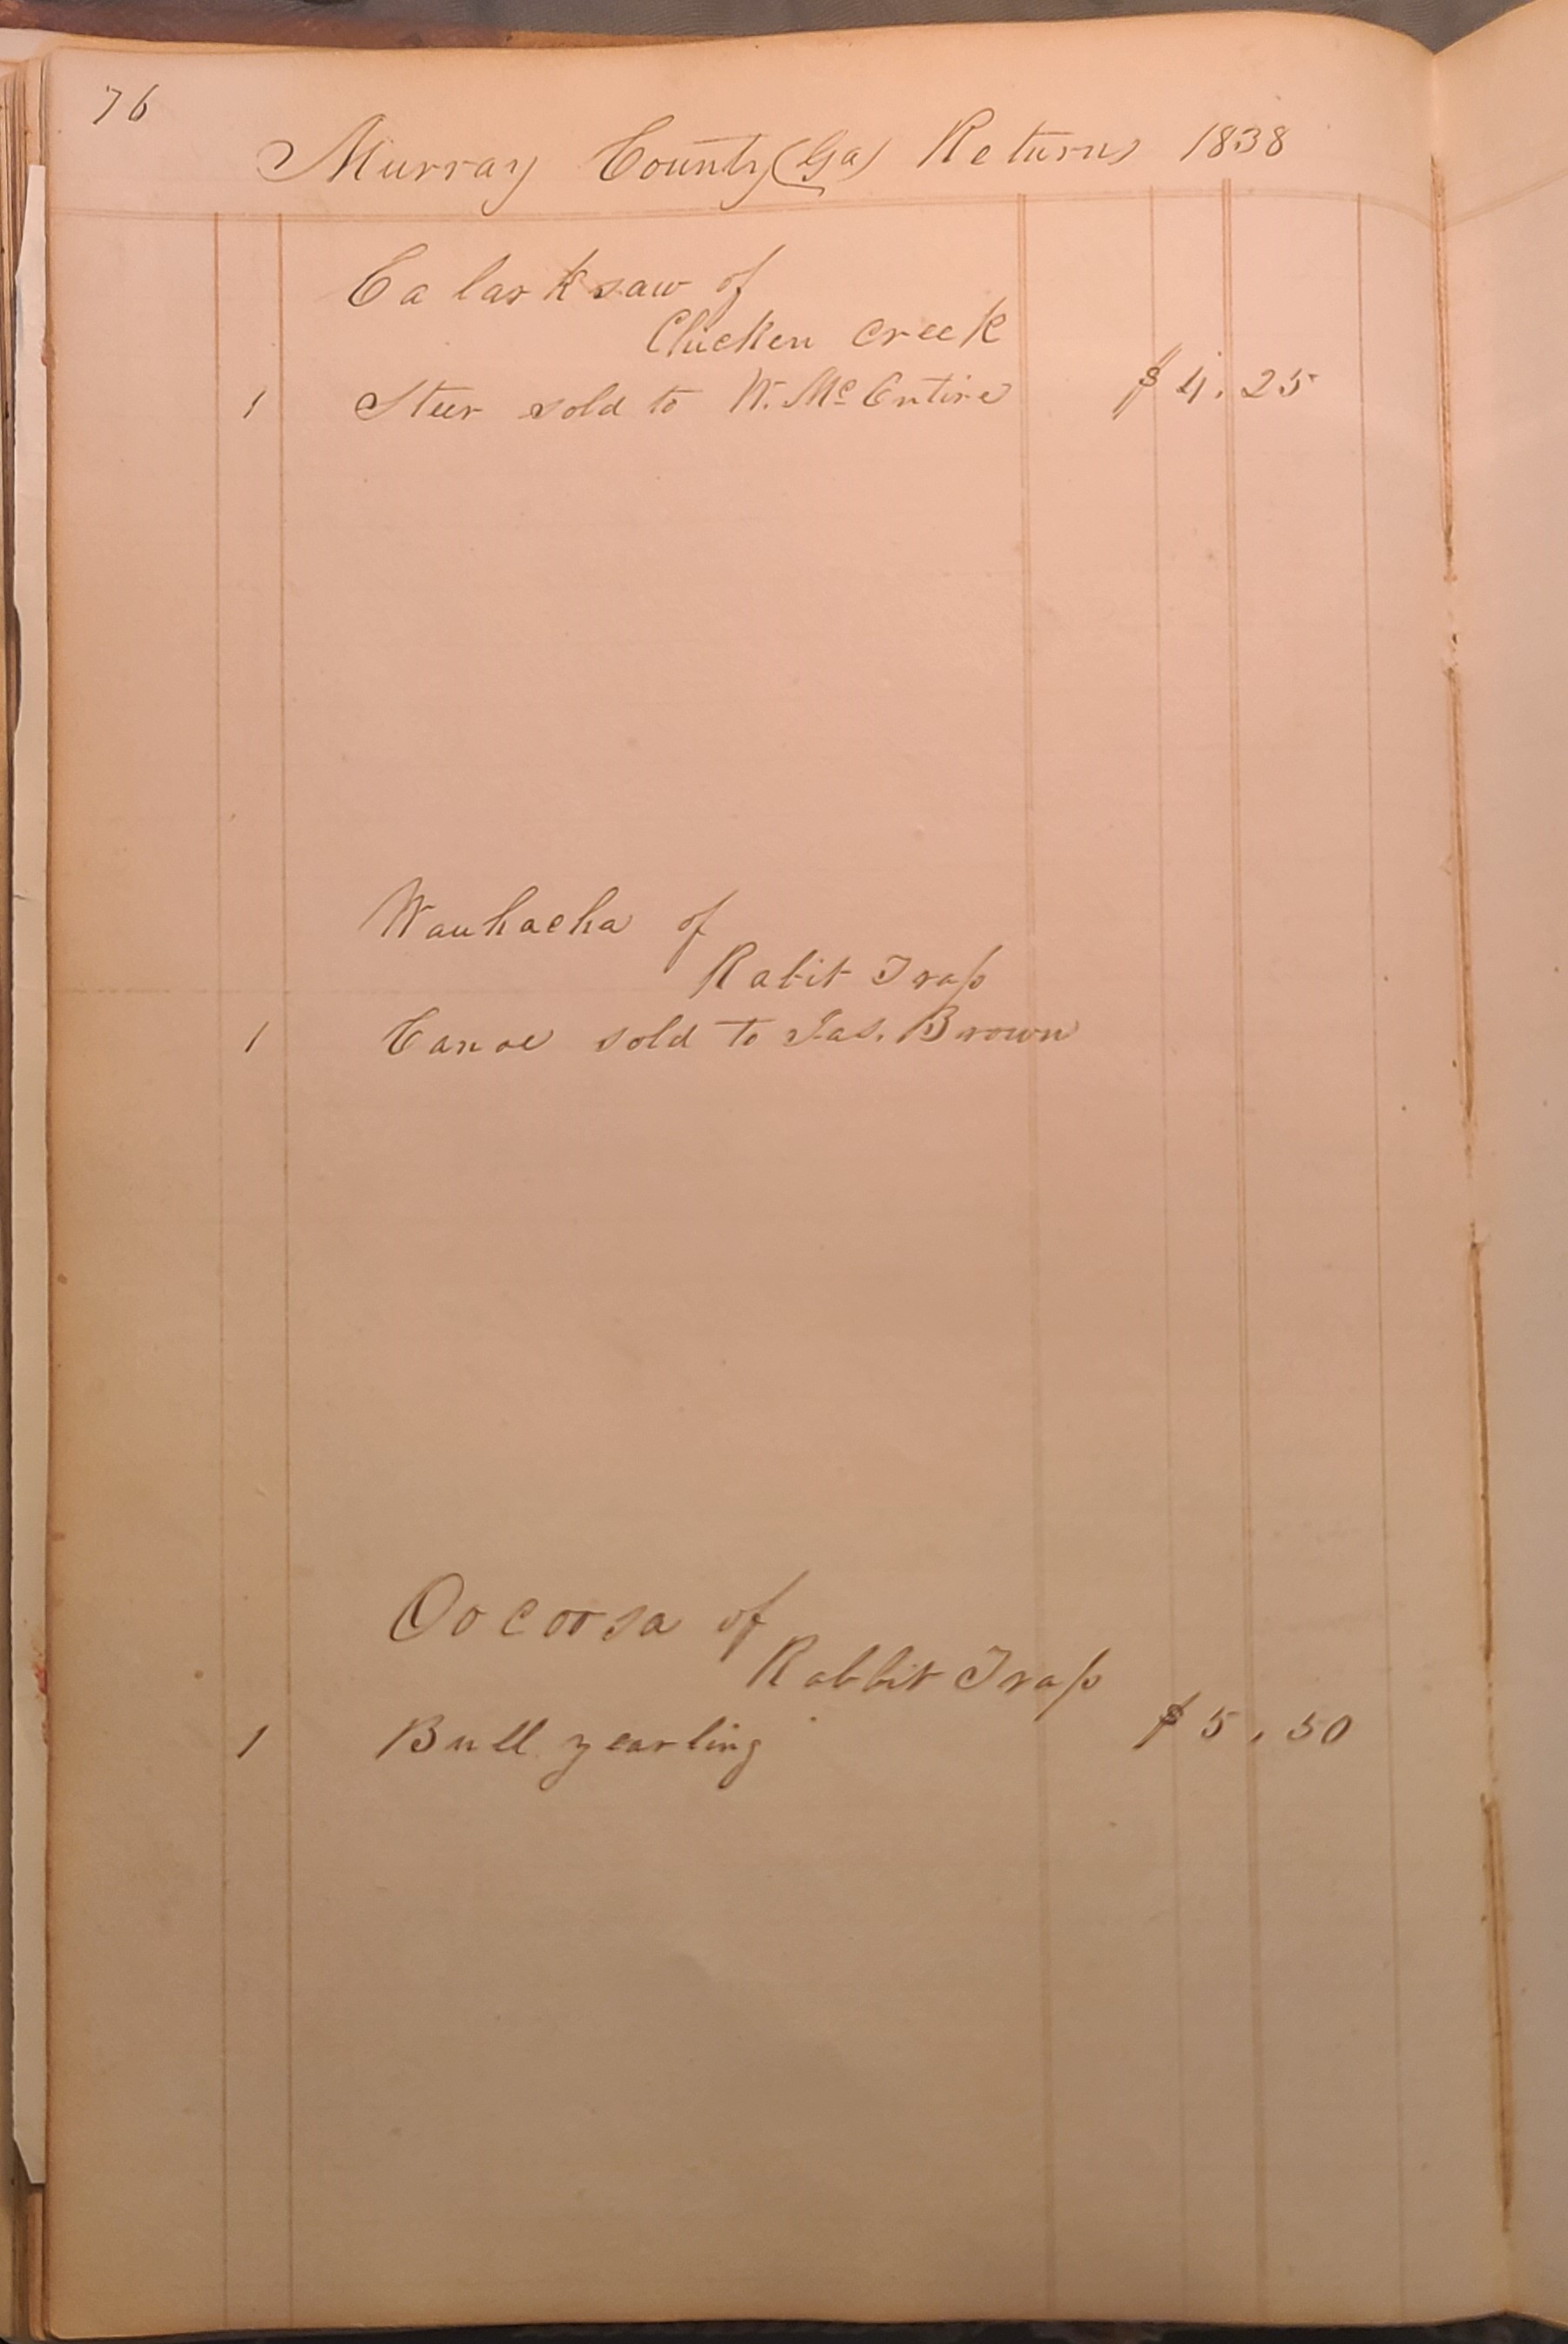 76
Murray County (Ga) Returns 1838
Ca lask saw of
Chicken Creek
1 Steer sold to W. McEntire $4.25
Wauhacha of
Rabit Trap
1 Canoe sold to Jas. Brown
Oocoosa of
Rabbit Trap
1 Bull yearling $5.50